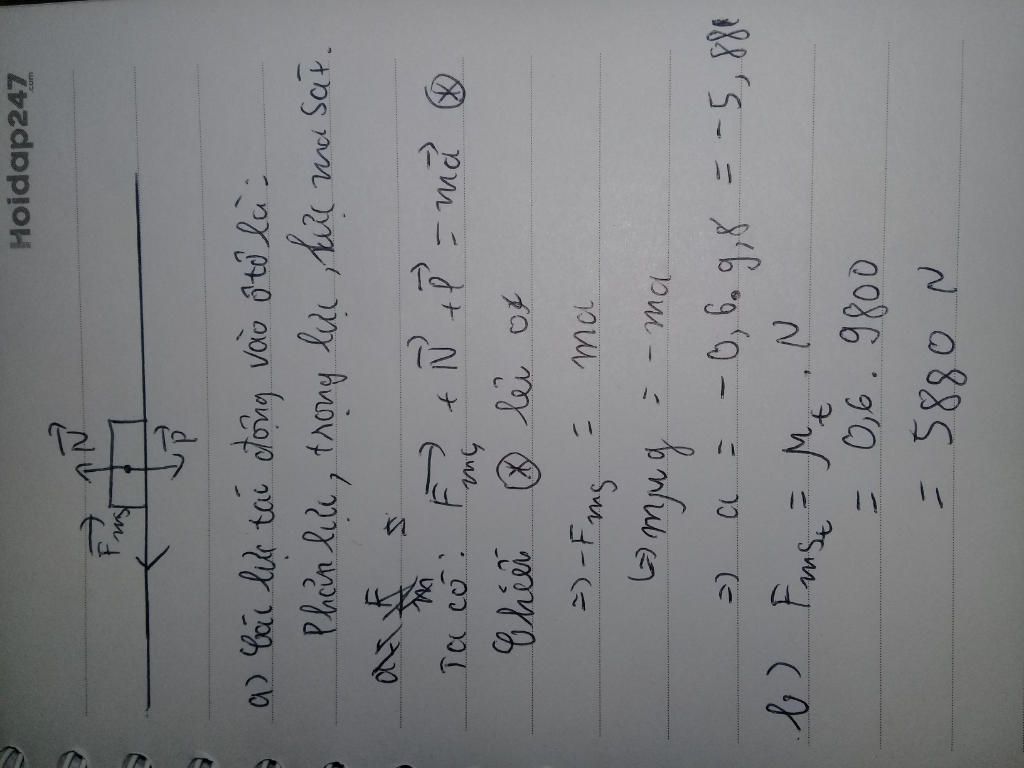 Hoidap247
.com
N⃗
F⃗ms
P⃗
a) Các lực tác động vào ôtô là:
Phản lực, trọng lực, lực ma sát.
Ta có: F⃗ms + N⃗ + P⃗ = ma⃗ ⊛
Chiếu ⊛ lên ox
=> -Fms = ma
<=> mμg = -ma
=> a = -0,6.9,8 = -5,88
b) Fmst = μt . N
= 0,6 . 9800
= 5880 N